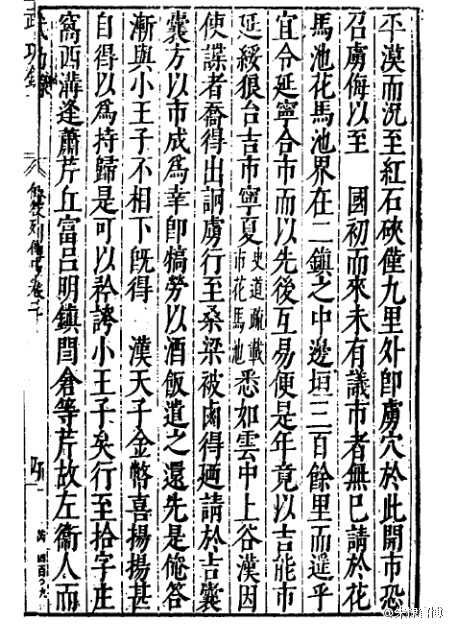 平漠而況至紅石硤僅九里外卽虜穴於此開市恐
召虜侮以至 國初而來未有議市者無已請於花
馬池花馬池界在二鎮之中邊垣三百餘里而遥乎
宜令延寧合市而以先後互易便是年竟以吉能市
延綏狠台吉市寧夏史道疏載市花馬池悉如雲中上谷漢因
使諜者喬得出詗虜行至桑梁被鹵得廼請於吉囊
囊方以市成爲幸卽犒勞以酒飯遣之還先是俺答
漸與小王子不相下旣得 漢天子金幣喜揚揚甚
自得以爲持歸是可以矜誇小王子矣行至拾字庄
窩西溝逢蕭芹丘富呂明鎮閆倉等芹故左衞人而
武功錄
俺答列傳中卷二